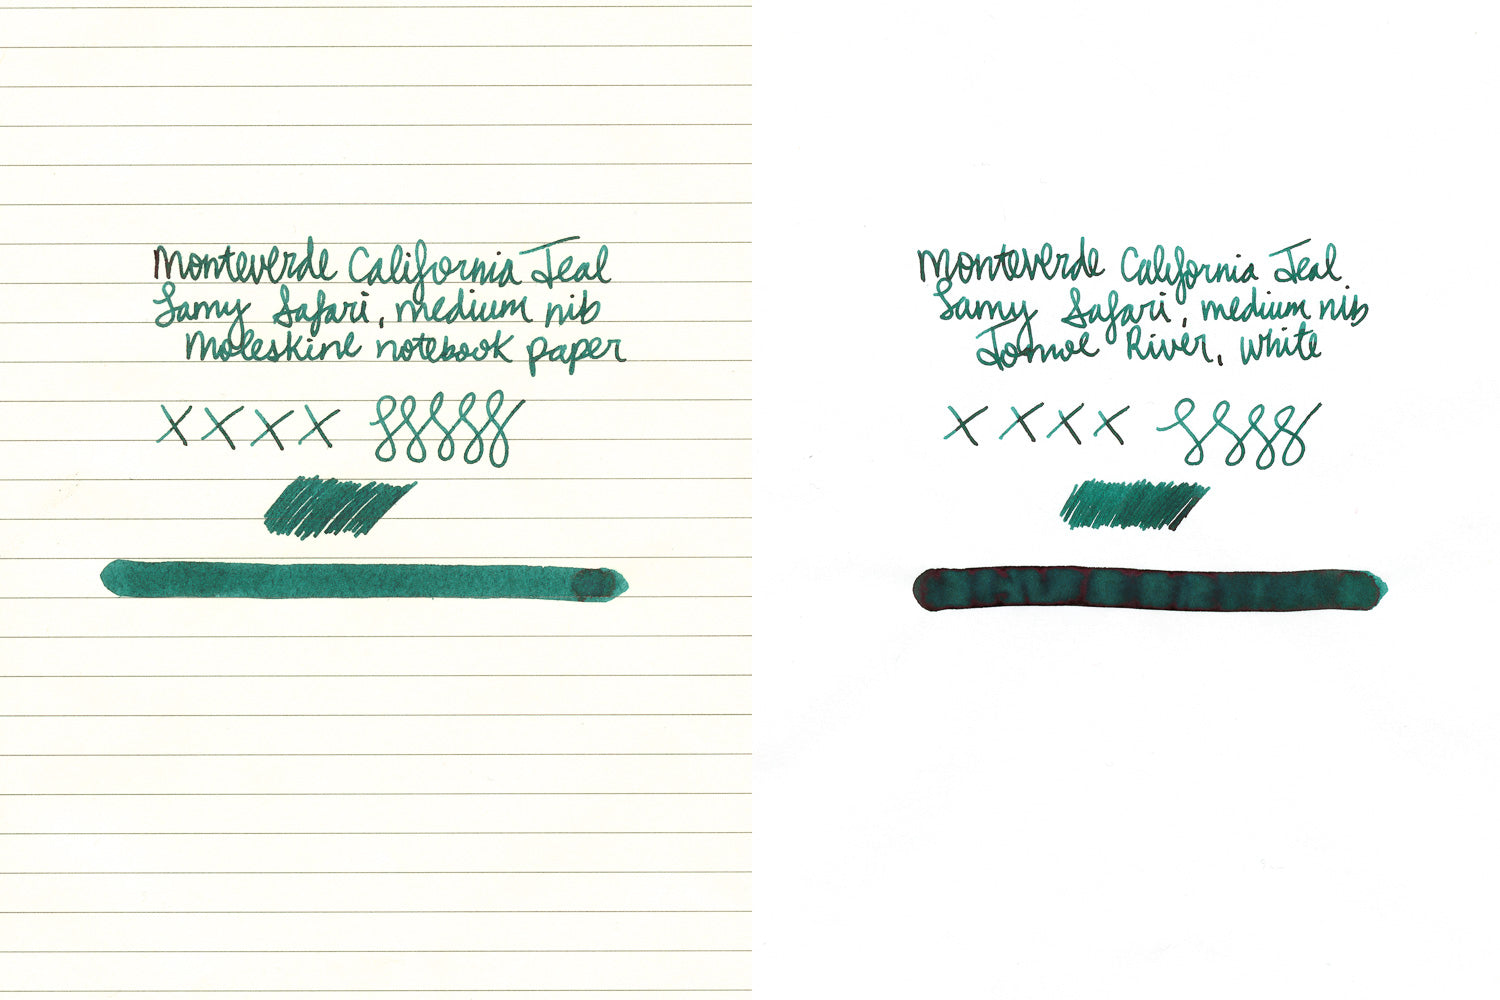 Monteverde California Teal
Lamy Safari, medium nib
Moleskine notebook paper
X X X X
Monteverde California Teal
Lamy Safari, medium nib
Tomoe River, white
X X X X